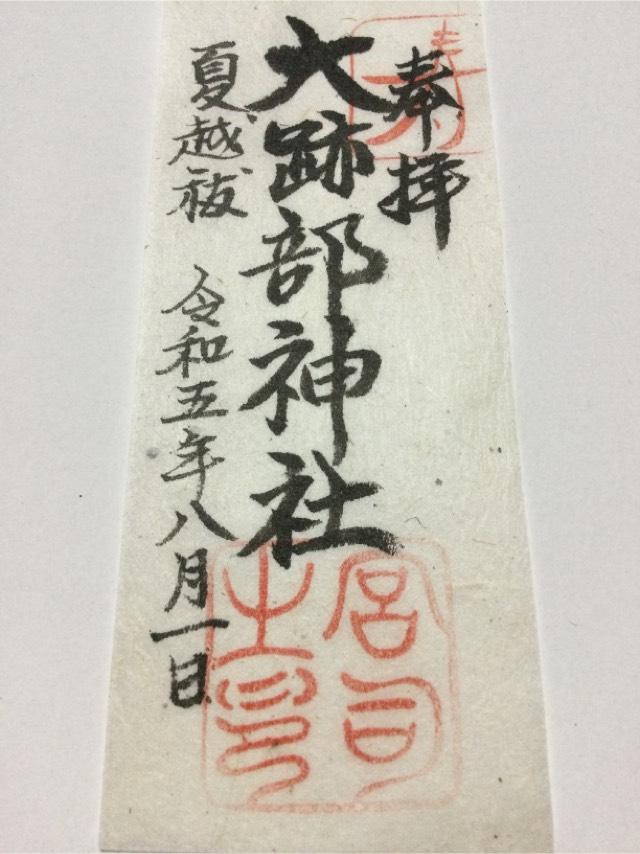 奉拝
大跡部神社
夏越祓 令和五年八月一日
宮司
之印